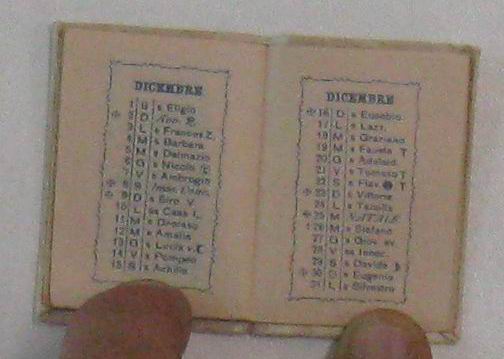 DICEMBRE
1 S s Eligio
✠ 2 D Avv.
3 L s Frances.
4 M s Barbara
5 M s Dalmazio
6 G s Nicolò
7 V s Ambrogio
✠ 8 S Imm.
✠ 9 D s Siro V.
10 L ss Casa L.
11 M s Damaso
12 M s Amalia
13 G s Lucia v.
14 V s Pompeo
15 S s Achille
DICEMBRE
✠ 16 D s Eusebio
17 L s Lazz.
18 M s Graziano
19 M s Fausta T
20 G s Adelaid.
21 V s Tomaso T
22 S s Flav. T
✠ 23 D s Vittoria
24 L s Tarsilla
✠ 25 M NATALE
† 26 M s Stefano
27 G s Giov. ev.
28 V ss Innoc.
29 S s Davide
✠ 30 D s Eugenio
31 L s Silvestro